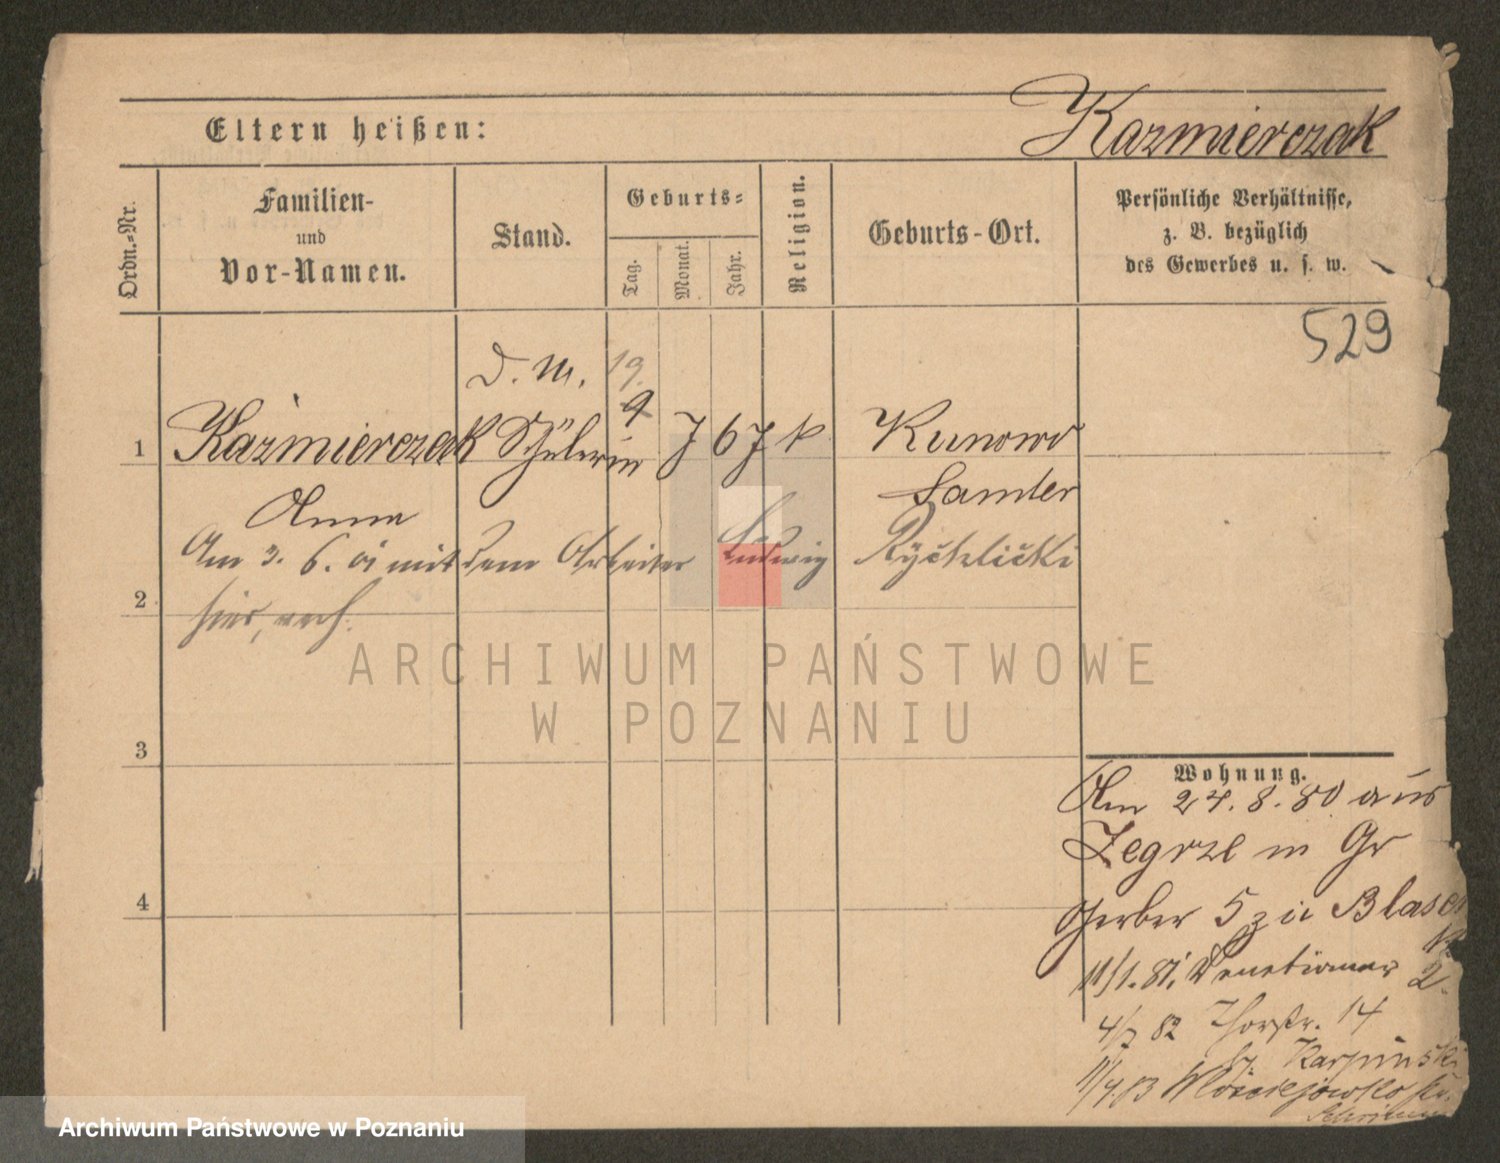 Kazmierczak
Eltern heißen:
Ordn.-Nr.
Familien-
und
Vor-Namen.
Stand.
Geburts-
Tag.
Monat.
Jahr.
Religion.
Geburts-Ort.
Persönliche Verhältnisse,
z. B. bezüglich
des Gewerbes u. s. w.
529
D. M. 19.
9
1 Kazmierczak Schülerin 7 67 k Kunowo
Anna Samter
Am 3. 6. 91 mit dem Arbeiter Ludwig Rychlicki
2
hier, verh.
ARCHIWUM PAŃSTWOWE
W POZNANIU
3
4
Wohnung.
Am 24. 8. 80 aus
Zegrze in Gr
Gerber 5 zu
11/1. 81. Venetianer 2.
4/7 82 Thorstr. 14
Karpinski
11/4. 83
Archiwum Państwowe w Poznaniu